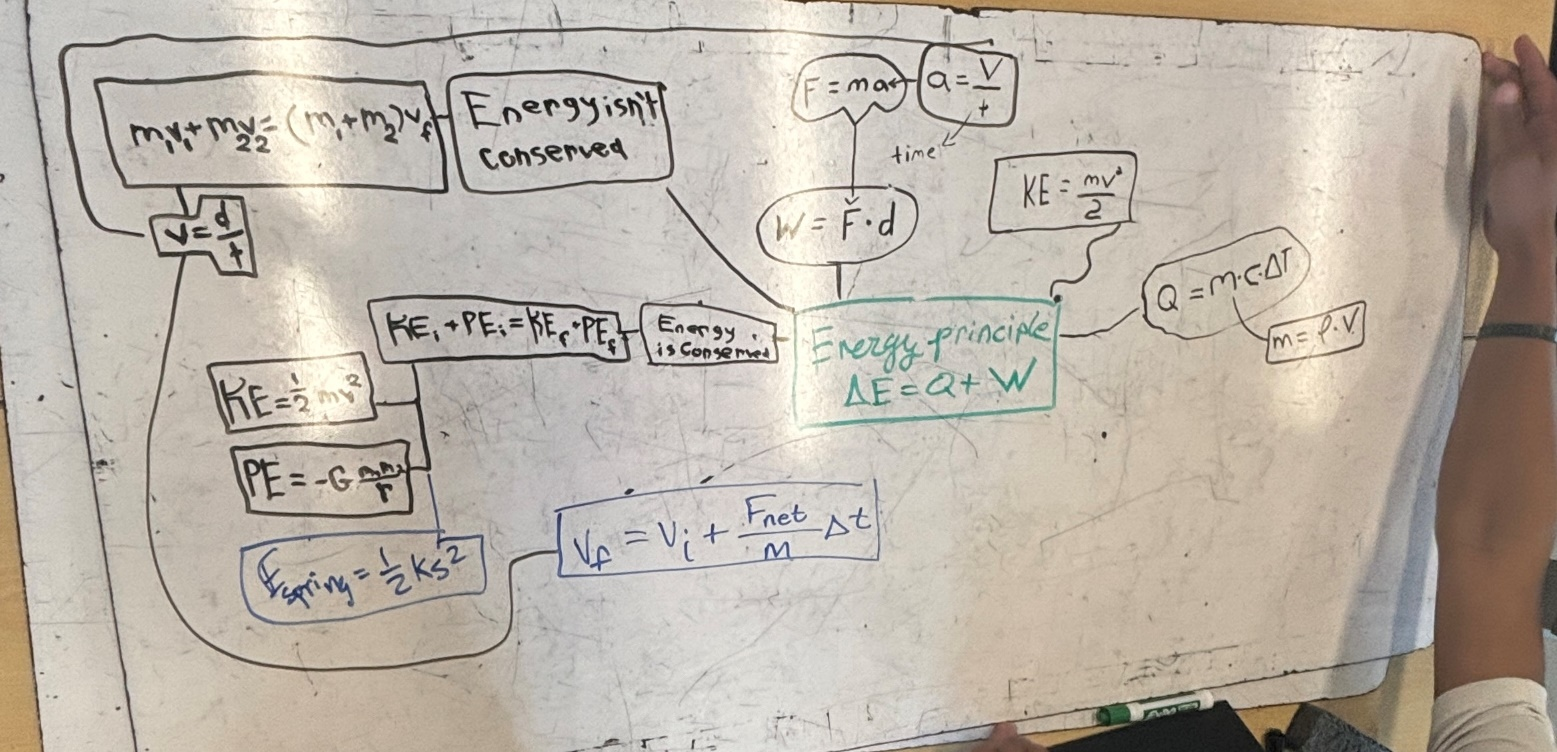 m₁v₁+m₂v₂=(m₁+m₂)v_f
Energy isn't
conserved
F = ma
a = V/t
time
W = F·d
KE = mv²/2
v = d/t
Q = m·c·ΔT
m = ρ·V
KEᵢ + PEᵢ = KE_f + PE_f
Energy
is Conserved
Energy principle
ΔE = Q + W
KE = ½ mv²
PE = -G m₁m₂/r
E_spring = ½ ks²
V_f = Vᵢ + F_net/m Δt